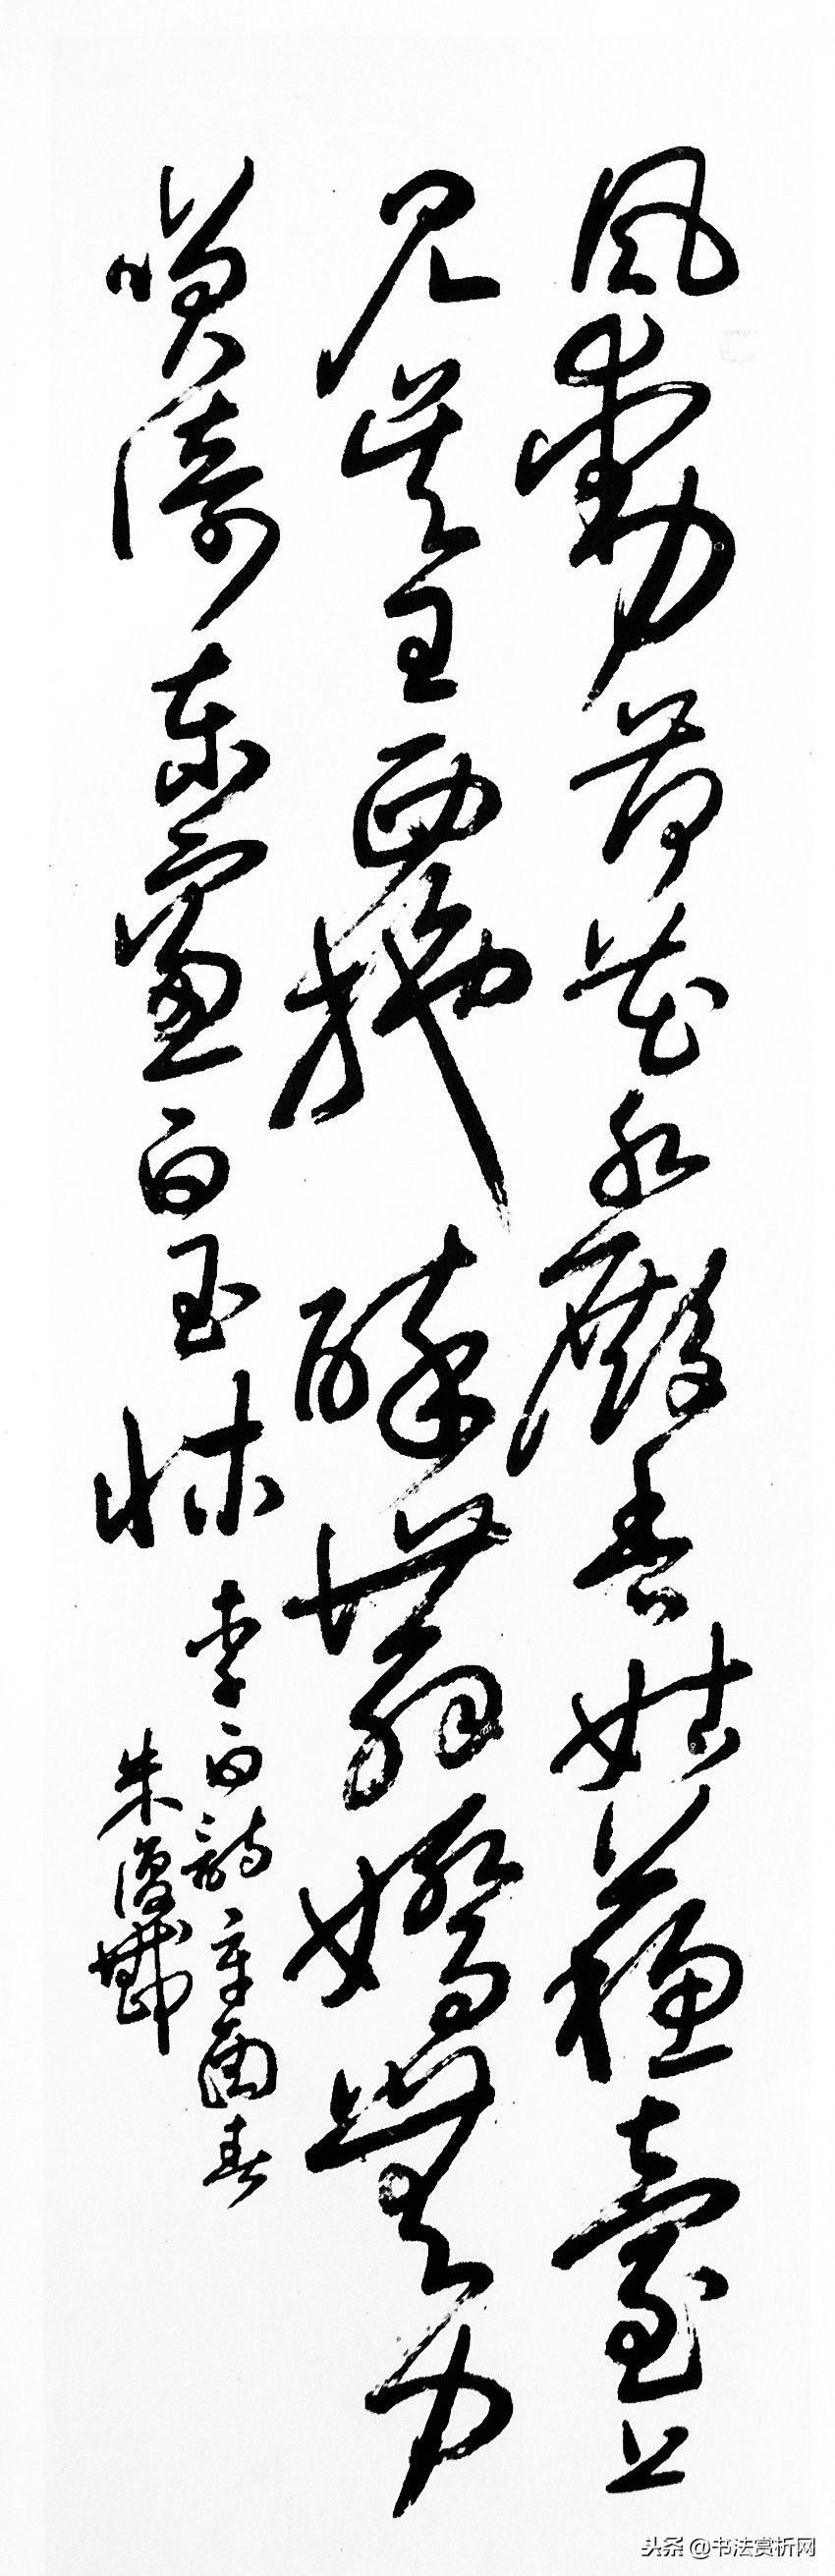 風動荷花水殿香姑蘇臺上
見吳王西施醉舞嬌無力
咲倚東窗白玉牀
李白詩辛酉春
朱復戡
头条 @书法赏析网